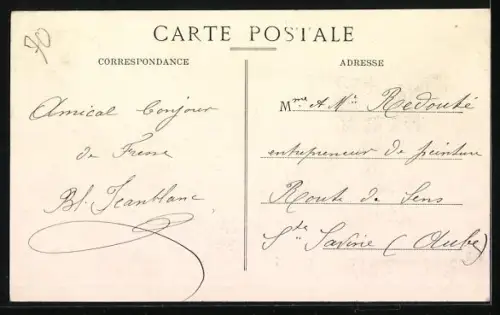 70
CARTE POSTALE
CORRESPONDANCE
Amical bonjour
de Fresse
Bl. Jeanblanc
ADRESSE
Mme et Mr Redouté
entrepreneur de peinture
Route de Sens
Ste Savine (Aube)